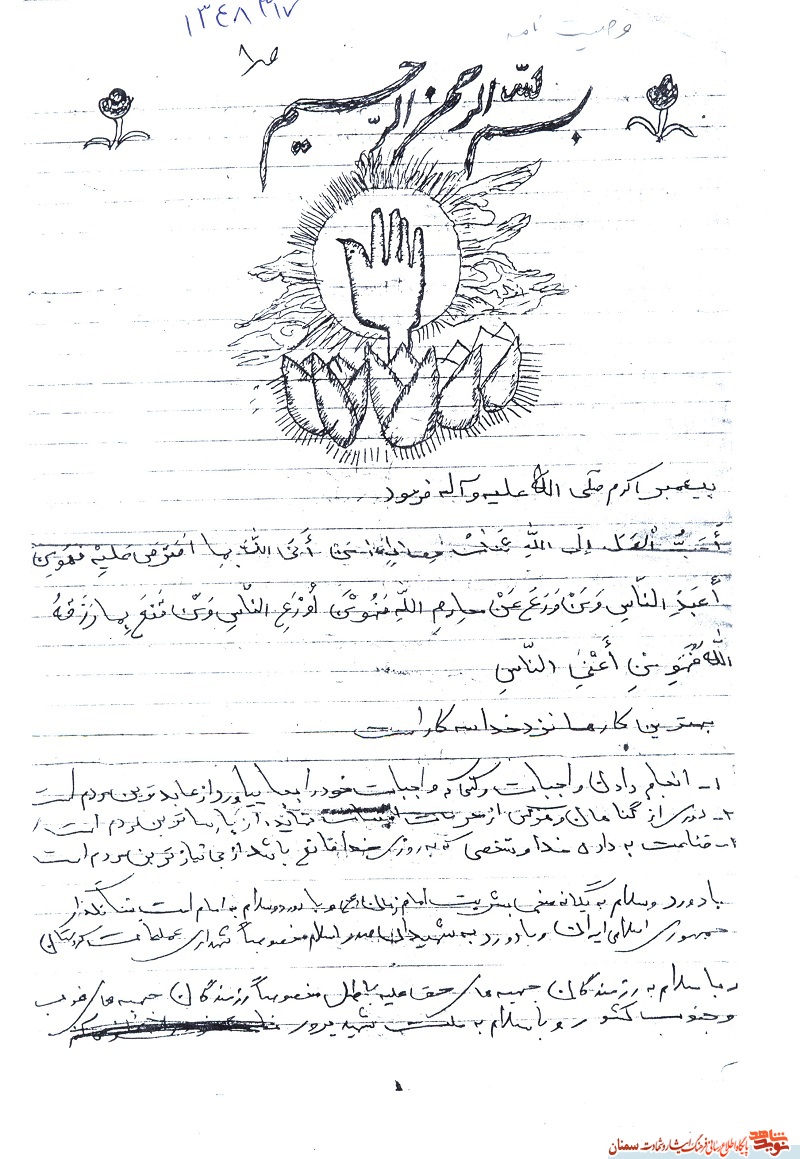 وصیت نامه
۱۳۴۸۳۱۷
ص۱
بسم الله الرحمن الرحیم
پیغمبر اکرم صلی الله علیه وآله فرمود
إلی اللّٰهِ أتی اللّٰه بما افترض علیه فهو من
أعبَدِ النّاسِ وَمَنْ وَرَعَ عَنْ محارمِ اللّٰهِ فهو مِنْ أوْرَعِ النّاسِ وَمَنْ قَنَعَ بِما رَزَقَهُ
اللّٰه فَهُوَ مِنْ أغْنَی النّاسِ
بهترین کارها نزد خدا سه کار است
۱- انجام دادن واجبات و کسی که واجبات خود را بجا بیاورد از عابدترین مردم است
۲- دوری از گناهان و هرکس از محرمات اجتناب نماید از پارساترین مردم است
۳- قناعت به داده خدا و شخصی که به روزی خدا قانع باشد از بی نیازترین مردم است
با درود وسلام به یگانه منجی بشریت امام زمان (عج) و با درود وسلام به امام امت بنیانگذار
جمهوری اسلامی ایران و با درود به شهیدان صدر اسلام مخصوصاً شهدای کردستان
و با سلام به رزمندگان جبهه های حق علیه باطل مخصوصاً رزمندگان جبهه های غرب
و جنوب کشور و با سلام به ملت شهید پرور
۱
نوید شاهد
پایگاه اطلاع رسانی فرهنگ ایثار و شهادت سمنان